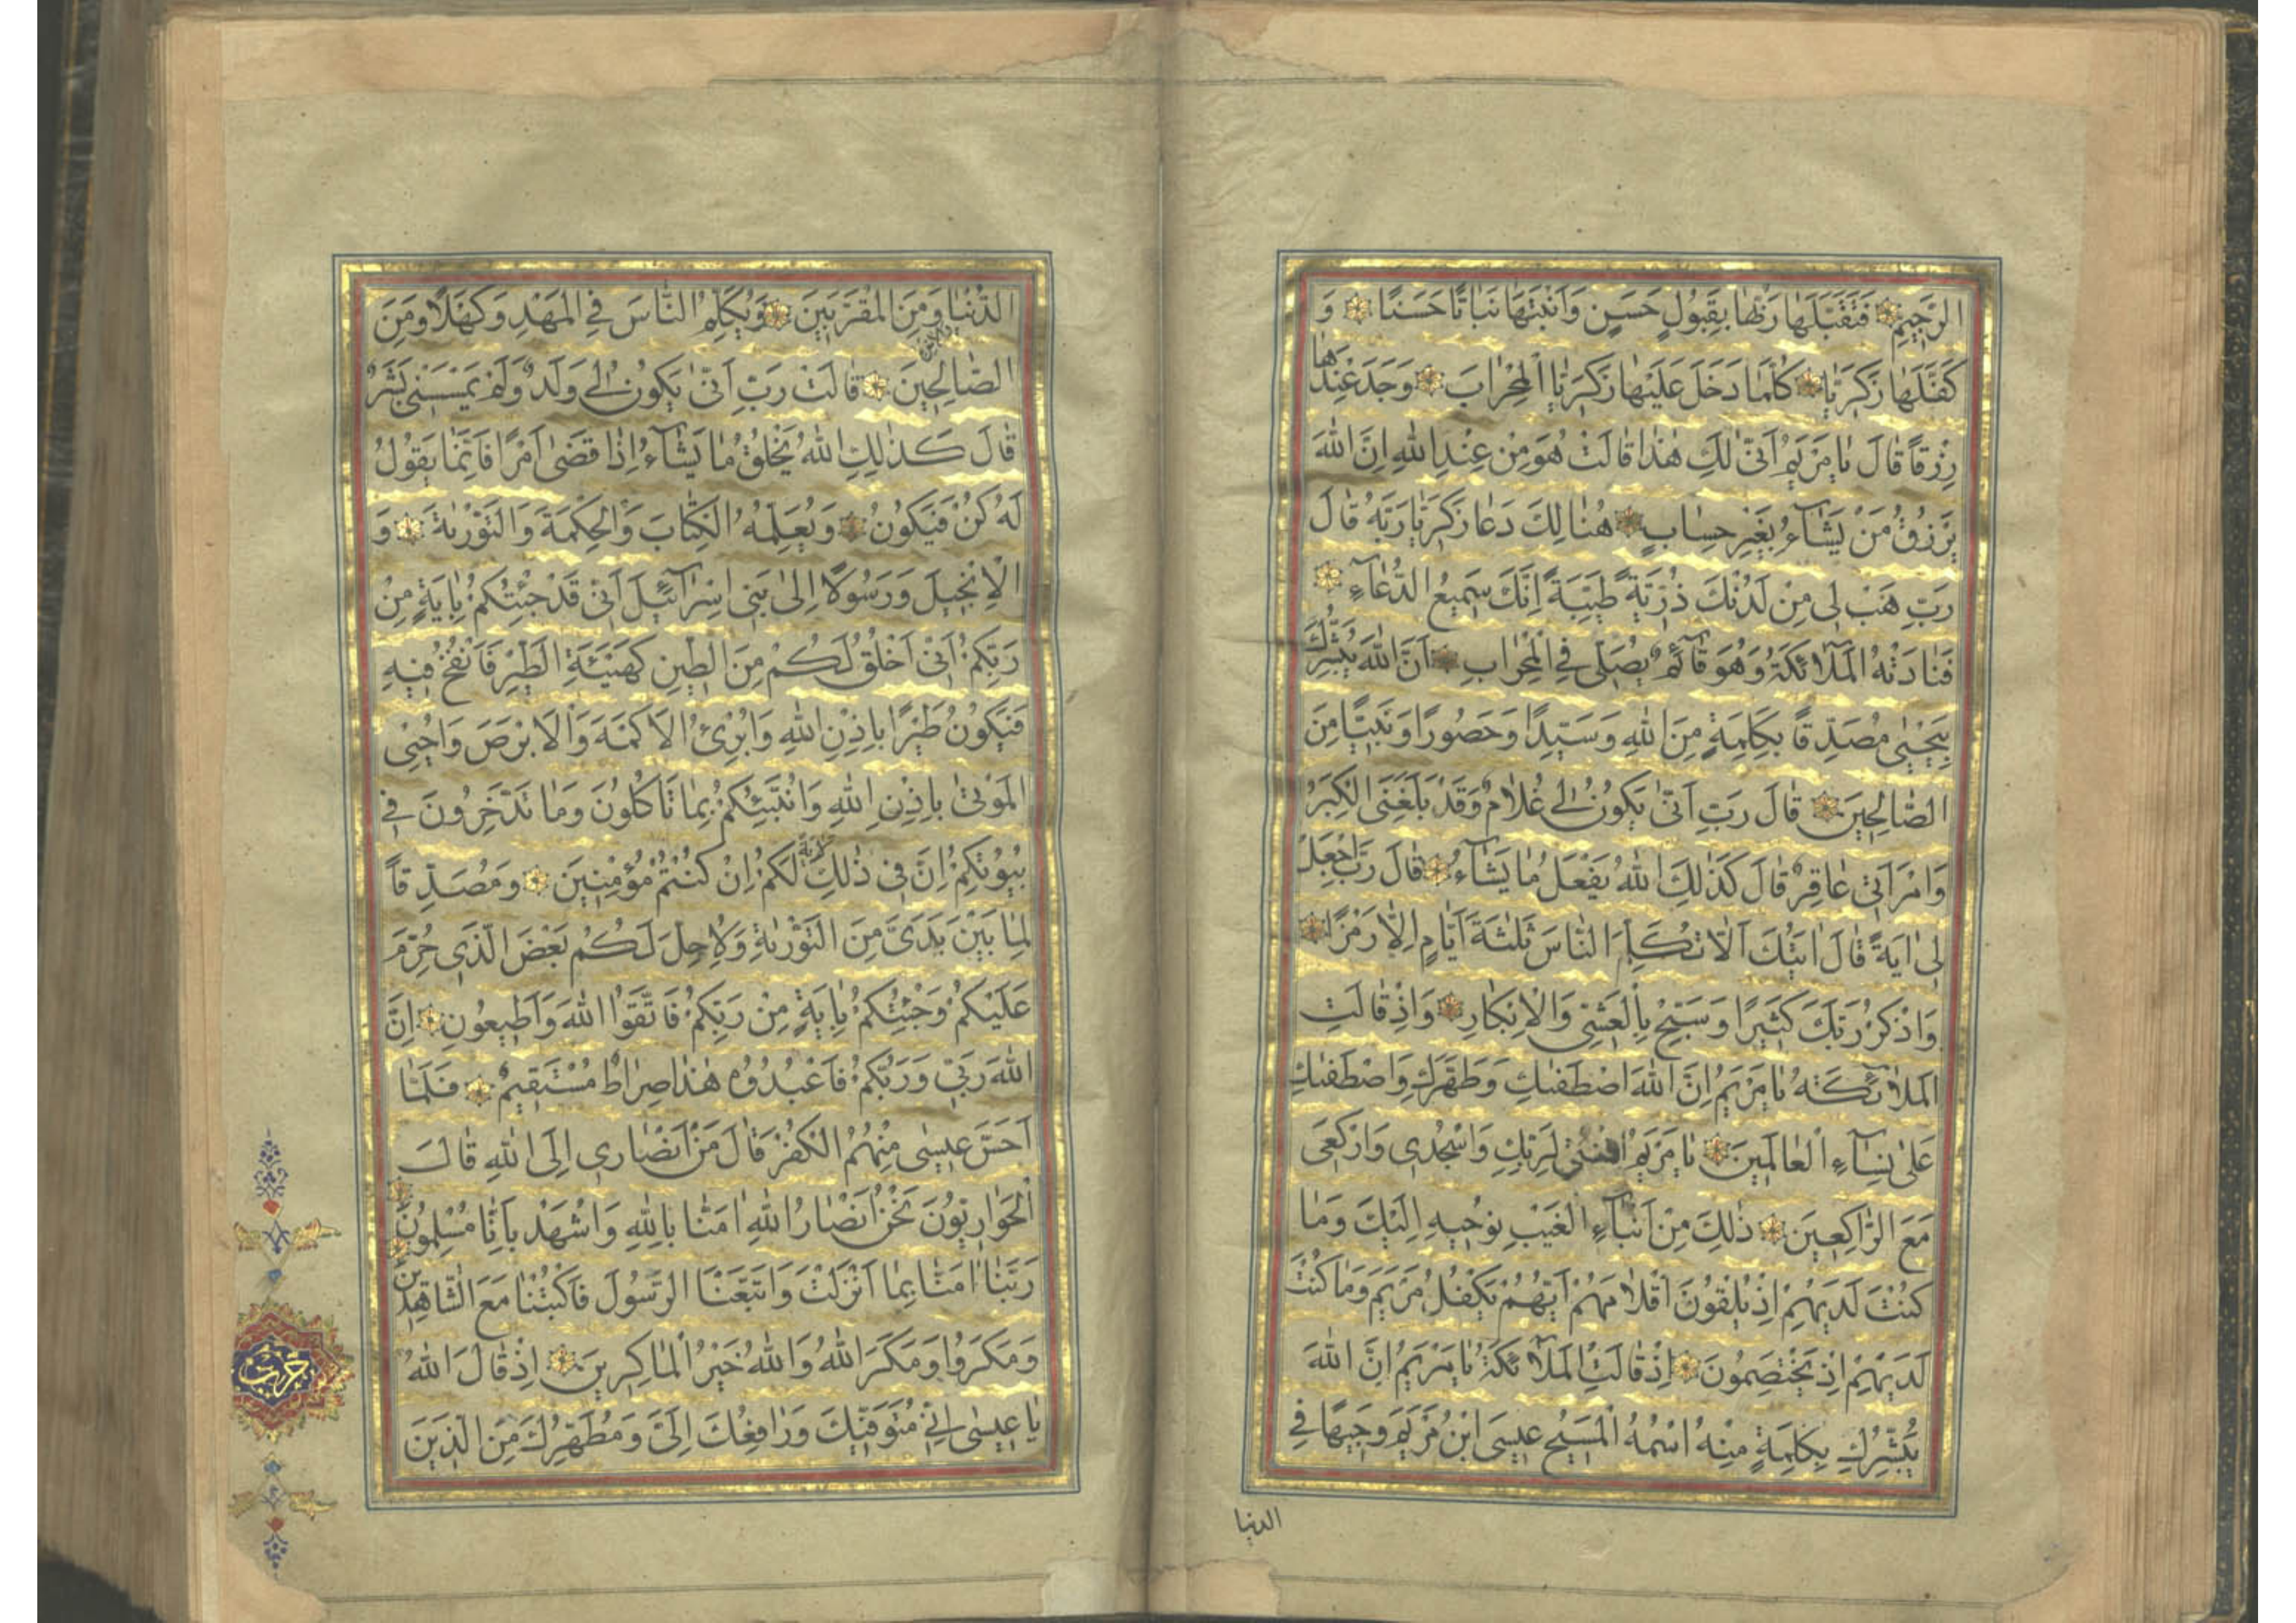 الرَّجِيمِ فَتَقَبَّلَهَا رَبُّهَا بِقَبُولٍ حَسَنٍ وَاَنْبَتَهَا نَبَاتًا حَسَنًا وَ
كَفَّلَهَا زَكَرِيَّا كُلَّمَا دَخَلَ عَلَيْهَا زَكَرِيَّا الْمِحْرَابَ وَجَدَ عِنْدَهَا
رِزْقًا قَالَ يَا مَرْيَمُ اَنّٰى لَكِ هٰذَا قَالَتْ هُوَ مِنْ عِنْدِ اللّٰهِ اِنَّ اللّٰهَ
يَرْزُقُ مَنْ يَشَآءُ بِغَيْرِ حِسَابٍ هُنَالِكَ دَعَا زَكَرِيَّا رَبَّهُ قَالَ
رَبِّ هَبْ لِى مِنْ لَدُنْكَ ذُرِّيَّةً طَيِّبَةً اِنَّكَ سَمِيعُ الدُّعَآءِ
فَنَادَتْهُ الْمَلَآئِكَةُ وَهُوَ قَآئِمٌ يُصَلِّى فِى الْمِحْرَابِ اَنَّ اللّٰهَ يُبَشِّرُكَ
بِيَحْيٰى مُصَدِّقًا بِكَلِمَةٍ مِنَ اللّٰهِ وَسَيِّدًا وَحَصُورًا وَنَبِيًّا مِنَ
الصَّالِحِينَ قَالَ رَبِّ اَنّٰى يَكُونُ لِى غُلَامٌ وَقَدْ بَلَغَنِىَ الْكِبَرُ
وَامْرَاَتِى عَاقِرٌ قَالَ كَذٰلِكَ اللّٰهُ يَفْعَلُ مَا يَشَآءُ قَالَ رَبِّ اجْعَلْ
لِى اٰيَةً قَالَ اٰيَتُكَ اَلَّا تُكَلِّمَ النَّاسَ ثَلٰثَةَ اَيَّامٍ اِلَّا رَمْزًا
وَاذْكُرْ رَبَّكَ كَثِيرًا وَسَبِّحْ بِالْعَشِىِّ وَالْاِبْكَارِ وَاِذْ قَالَتِ
الْمَلَآئِكَةُ يَا مَرْيَمُ اِنَّ اللّٰهَ اصْطَفٰيكِ وَطَهَّرَكِ وَاصْطَفٰيكِ
عَلٰى نِسَآءِ الْعَالَمِينَ يَا مَرْيَمُ اقْنُتِى لِرَبِّكِ وَاسْجُدِى وَارْكَعِى
مَعَ الرَّاكِعِينَ ذٰلِكَ مِنْ اَنْبَآءِ الْغَيْبِ نُوحِيهِ اِلَيْكَ وَمَا
كُنْتَ لَدَيْهِمْ اِذْ يُلْقُونَ اَقْلَامَهُمْ اَيُّهُمْ يَكْفُلُ مَرْيَمَ وَمَا كُنْتَ
لَدَيْهِمْ اِذْ يَخْتَصِمُونَ اِذْ قَالَتِ الْمَلَآئِكَةُ يَا مَرْيَمُ اِنَّ اللّٰهَ
يُبَشِّرُكِ بِكَلِمَةٍ مِنْهُ اسْمُهُ الْمَسِيحُ عِيسَى ابْنُ مَرْيَمَ وَجِيهًا فِى
الدنيا
الدُّنْيَا وَمِنَ الْمُقَرَّبِينَ وَيُكَلِّمُ النَّاسَ فِى الْمَهْدِ وَكَهْلًا وَمِنَ
الصَّالِحِينَ قَالَتْ رَبِّ اَنّٰى يَكُونُ لِى وَلَدٌ وَلَمْ يَمْسَسْنِى بَشَرٌ
قَالَ كَذٰلِكِ اللّٰهُ يَخْلُقُ مَا يَشَآءُ اِذَا قَضٰى اَمْرًا فَاِنَّمَا يَقُولُ
لَهُ كُنْ فَيَكُونُ وَيُعَلِّمُهُ الْكِتَابَ وَالْحِكْمَةَ وَالتَّوْرٰيةَ وَ
الْاِنْجِيلَ وَرَسُولًا اِلٰى بَنِى اِسْرَآئِيلَ اَنِّى قَدْ جِئْتُكُمْ بِاٰيَةٍ مِنْ
رَبِّكُمْ اَنِّى اَخْلُقُ لَكُمْ مِنَ الطِّينِ كَهَيْئَةِ الطَّيْرِ فَاَنْفُخُ فِيهِ
فَيَكُونُ طَيْرًا بِاِذْنِ اللّٰهِ وَاُبْرِئُ الْاَكْمَهَ وَالْاَبْرَصَ وَاُحْيِى
الْمَوْتٰى بِاِذْنِ اللّٰهِ وَاُنَبِّئُكُمْ بِمَا تَاْكُلُونَ وَمَا تَدَّخِرُونَ فِى
بُيُوتِكُمْ اِنَّ فِى ذٰلِكَ لَاٰيَةً لَكُمْ اِنْ كُنْتُمْ مُؤْمِنِينَ وَمُصَدِّقًا
لِمَا بَيْنَ يَدَىَّ مِنَ التَّوْرٰيةِ وَلِاُحِلَّ لَكُمْ بَعْضَ الَّذِى حُرِّمَ
عَلَيْكُمْ وَجِئْتُكُمْ بِاٰيَةٍ مِنْ رَبِّكُمْ فَاتَّقُوا اللّٰهَ وَاَطِيعُونِ اِنَّ
اللّٰهَ رَبِّى وَرَبُّكُمْ فَاعْبُدُوهُ هٰذَا صِرَاطٌ مُسْتَقِيمٌ فَلَمَّا
اَحَسَّ عِيسٰى مِنْهُمُ الْكُفْرَ قَالَ مَنْ اَنْصَارِى اِلَى اللّٰهِ قَالَ
الْحَوَارِيُّونَ نَحْنُ اَنْصَارُ اللّٰهِ اٰمَنَّا بِاللّٰهِ وَاشْهَدْ بِاَنَّا مُسْلِمُونَ
رَبَّنَا اٰمَنَّا بِمَا اَنْزَلْتَ وَاتَّبَعْنَا الرَّسُولَ فَاكْتُبْنَا مَعَ الشَّاهِدِينَ
وَمَكَرُوا وَمَكَرَ اللّٰهُ وَاللّٰهُ خَيْرُ الْمَاكِرِينَ اِذْ قَالَ اللّٰهُ
يَا عِيسٰى اِنِّى مُتَوَفِّيكَ وَرَافِعُكَ اِلَىَّ وَمُطَهِّرُكَ مِنَ الَّذِينَ
حزب